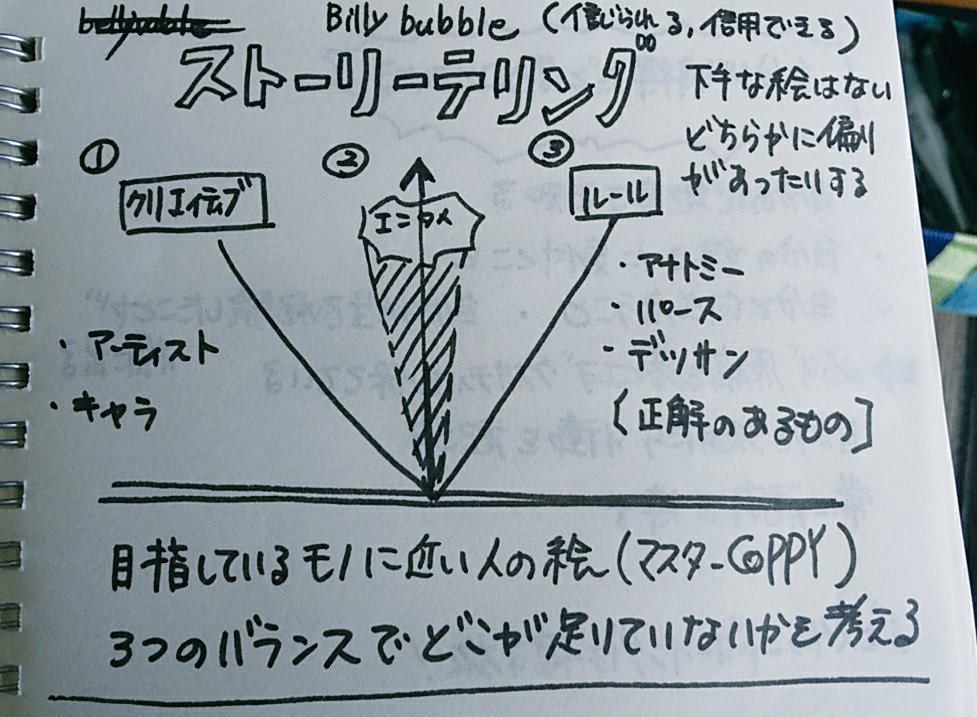 Billy bubble (信じられる,信用できる)
ストーリーテリング
下手な絵はない
どちらかに偏り
があったりする
① ② ③
クリエイティブ
エニタメ
ルール
・アナトミー
・パース
・デッサン
(正解のあるもの]
・アーティスト
・キャラ
目指しているモノに近い人の絵(マスターCOPPY)
3つのバランスでどこが足りていないかを考える